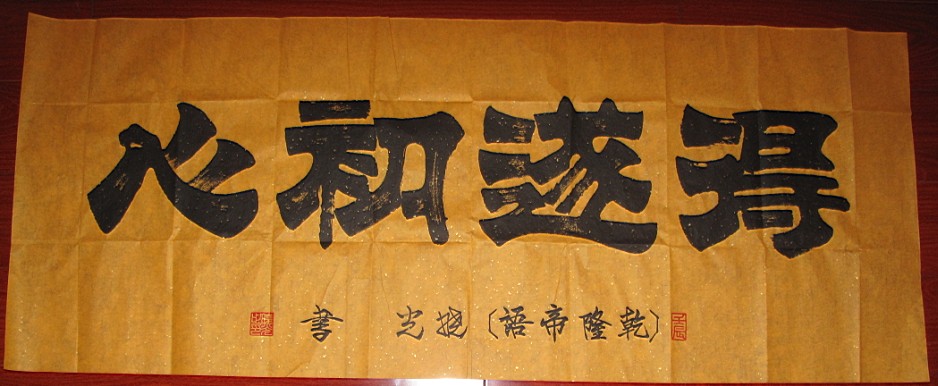 得遂初心
(乾隆帝語)挠光書